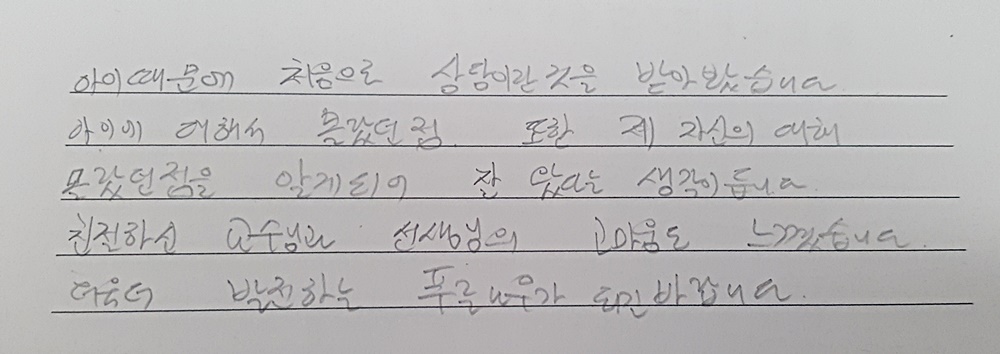 아이때문에 처음으로 상담이란것을 받아봤습니다.
아이에 대해서 몰랐던점. 또한 제 자신의 대해
몰랐던점을 알게되어 잘 왔다는 생각이듭니다.
친절하신 교수님과 선생님의 고마움도 느꼈습니다.
더욱더 발전하는 푸를 되길바랍니다.